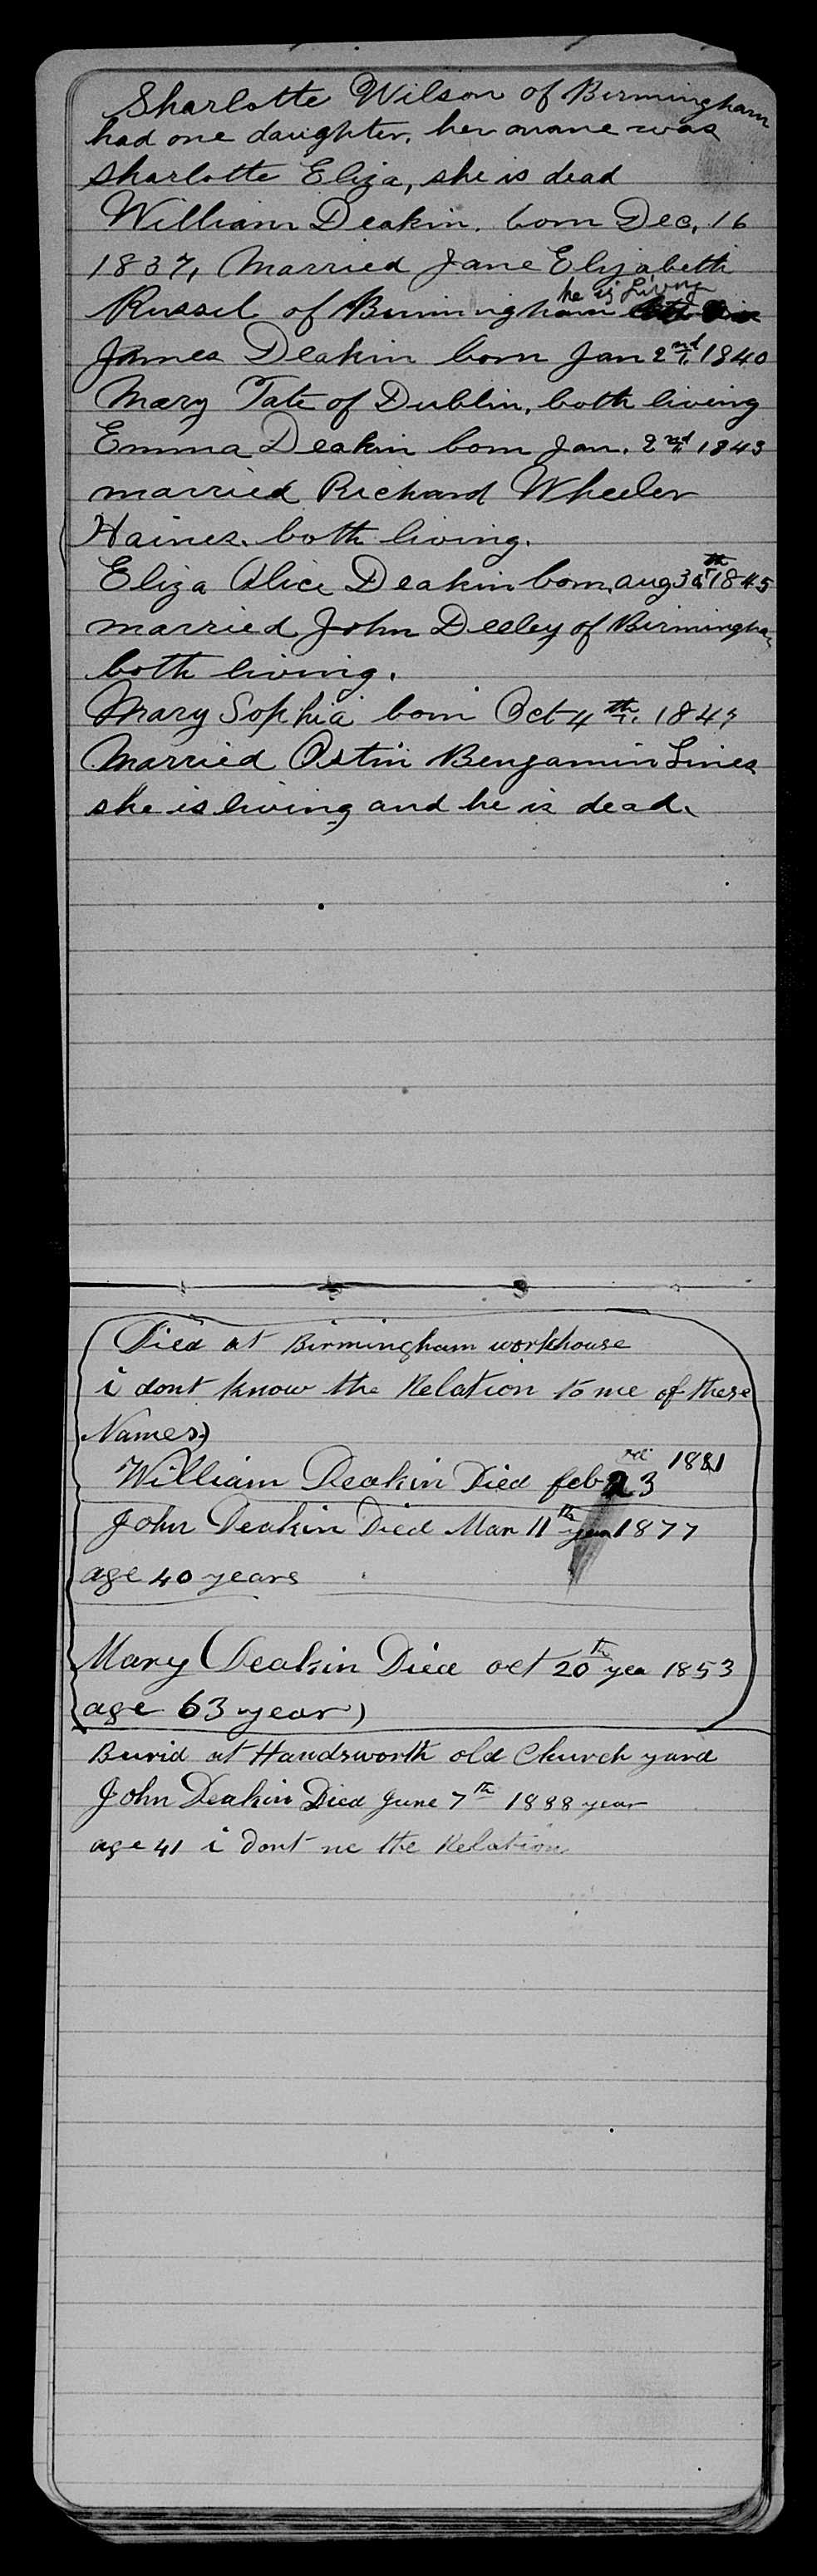 Sharlotte Wilson of Birmingham
had one daughter, her name was
Sharlotte Eliza, she is dead
William Deakin. born Dec, 16
1837, Married Jane Elizabeth
he is Living
Russel of Birmingham
James Deakin born Jan 2nd, 1840
Mary Tate of Dublin, both living
Emma Deakin born Jan. 2nd 1843
married Richard Wheeler
Haines. both living.
Eliza Alice Deakin born, aug 30th 1845
married John Deeley of Birmingham
both living.
Mary Sophia born Oct 4th, 1849
Married Ostin Benjamin Lines
she is living and he is dead.
Died at Birmingham workhouse
i dont know the Relation to me of these
Names)
William Deakin Died feb 23rd 1881
John Deakin Died Mar 11th year 1877
age 40 years
Mary Deakin Died oct 20th yea 1853
age 63 year)
Burid at Handsworth old Church yard
John Deakin Died June 7th 1888 year
age 41 i dont no the Relation